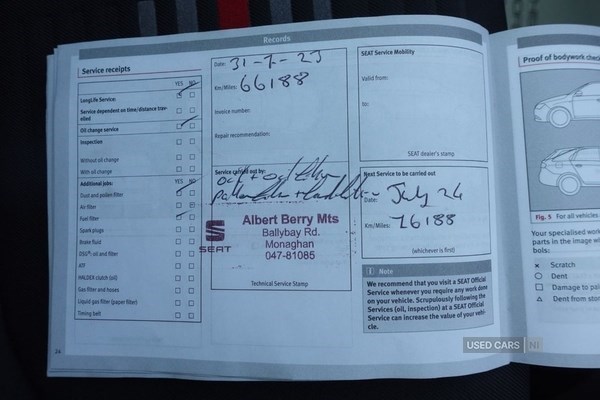 Records
Service receipts
YES NO
LongLife Service:
Service dependent on time/distance travelled
Oil change service
Inspection
Without oil change
With oil change
Additional jobs: YES NO
Dust and pollen filter
Air filter
Fuel filter
Spark plugs
Brake fluid
DSG®: oil and filter
ATF
HALDEX clutch (oil)
Gas filter and hoses
Liquid gas filter (paper filter)
Timing belt
34
Date: 31-7-23
Km/Miles: 66188
Invoice number:
Repair recommendation:
Service carried out by:
SEAT
Albert Berry Mts
Ballybay Rd.
Monaghan
047-81085
Technical Service Stamp
SEAT Service Mobility
Valid from:
to:
SEAT dealer's stamp
Next Service to be carried out
Date: July 24
Km/Miles: 76188
(whichever is first)
i Note
We recommend that you visit a SEAT Official
Service whenever you require any work done
on your vehicle. Scrupulously following the
Services (oil, inspection) at a SEAT Official
Service can increase the value of your vehi-
cle.
Proof of bodywork check
Fig. 5 For all vehicles
Your specialised work
parts in the image wi
bols:
Scratch
Dent
Damage to pai
Dent from ston
USED CARS NI